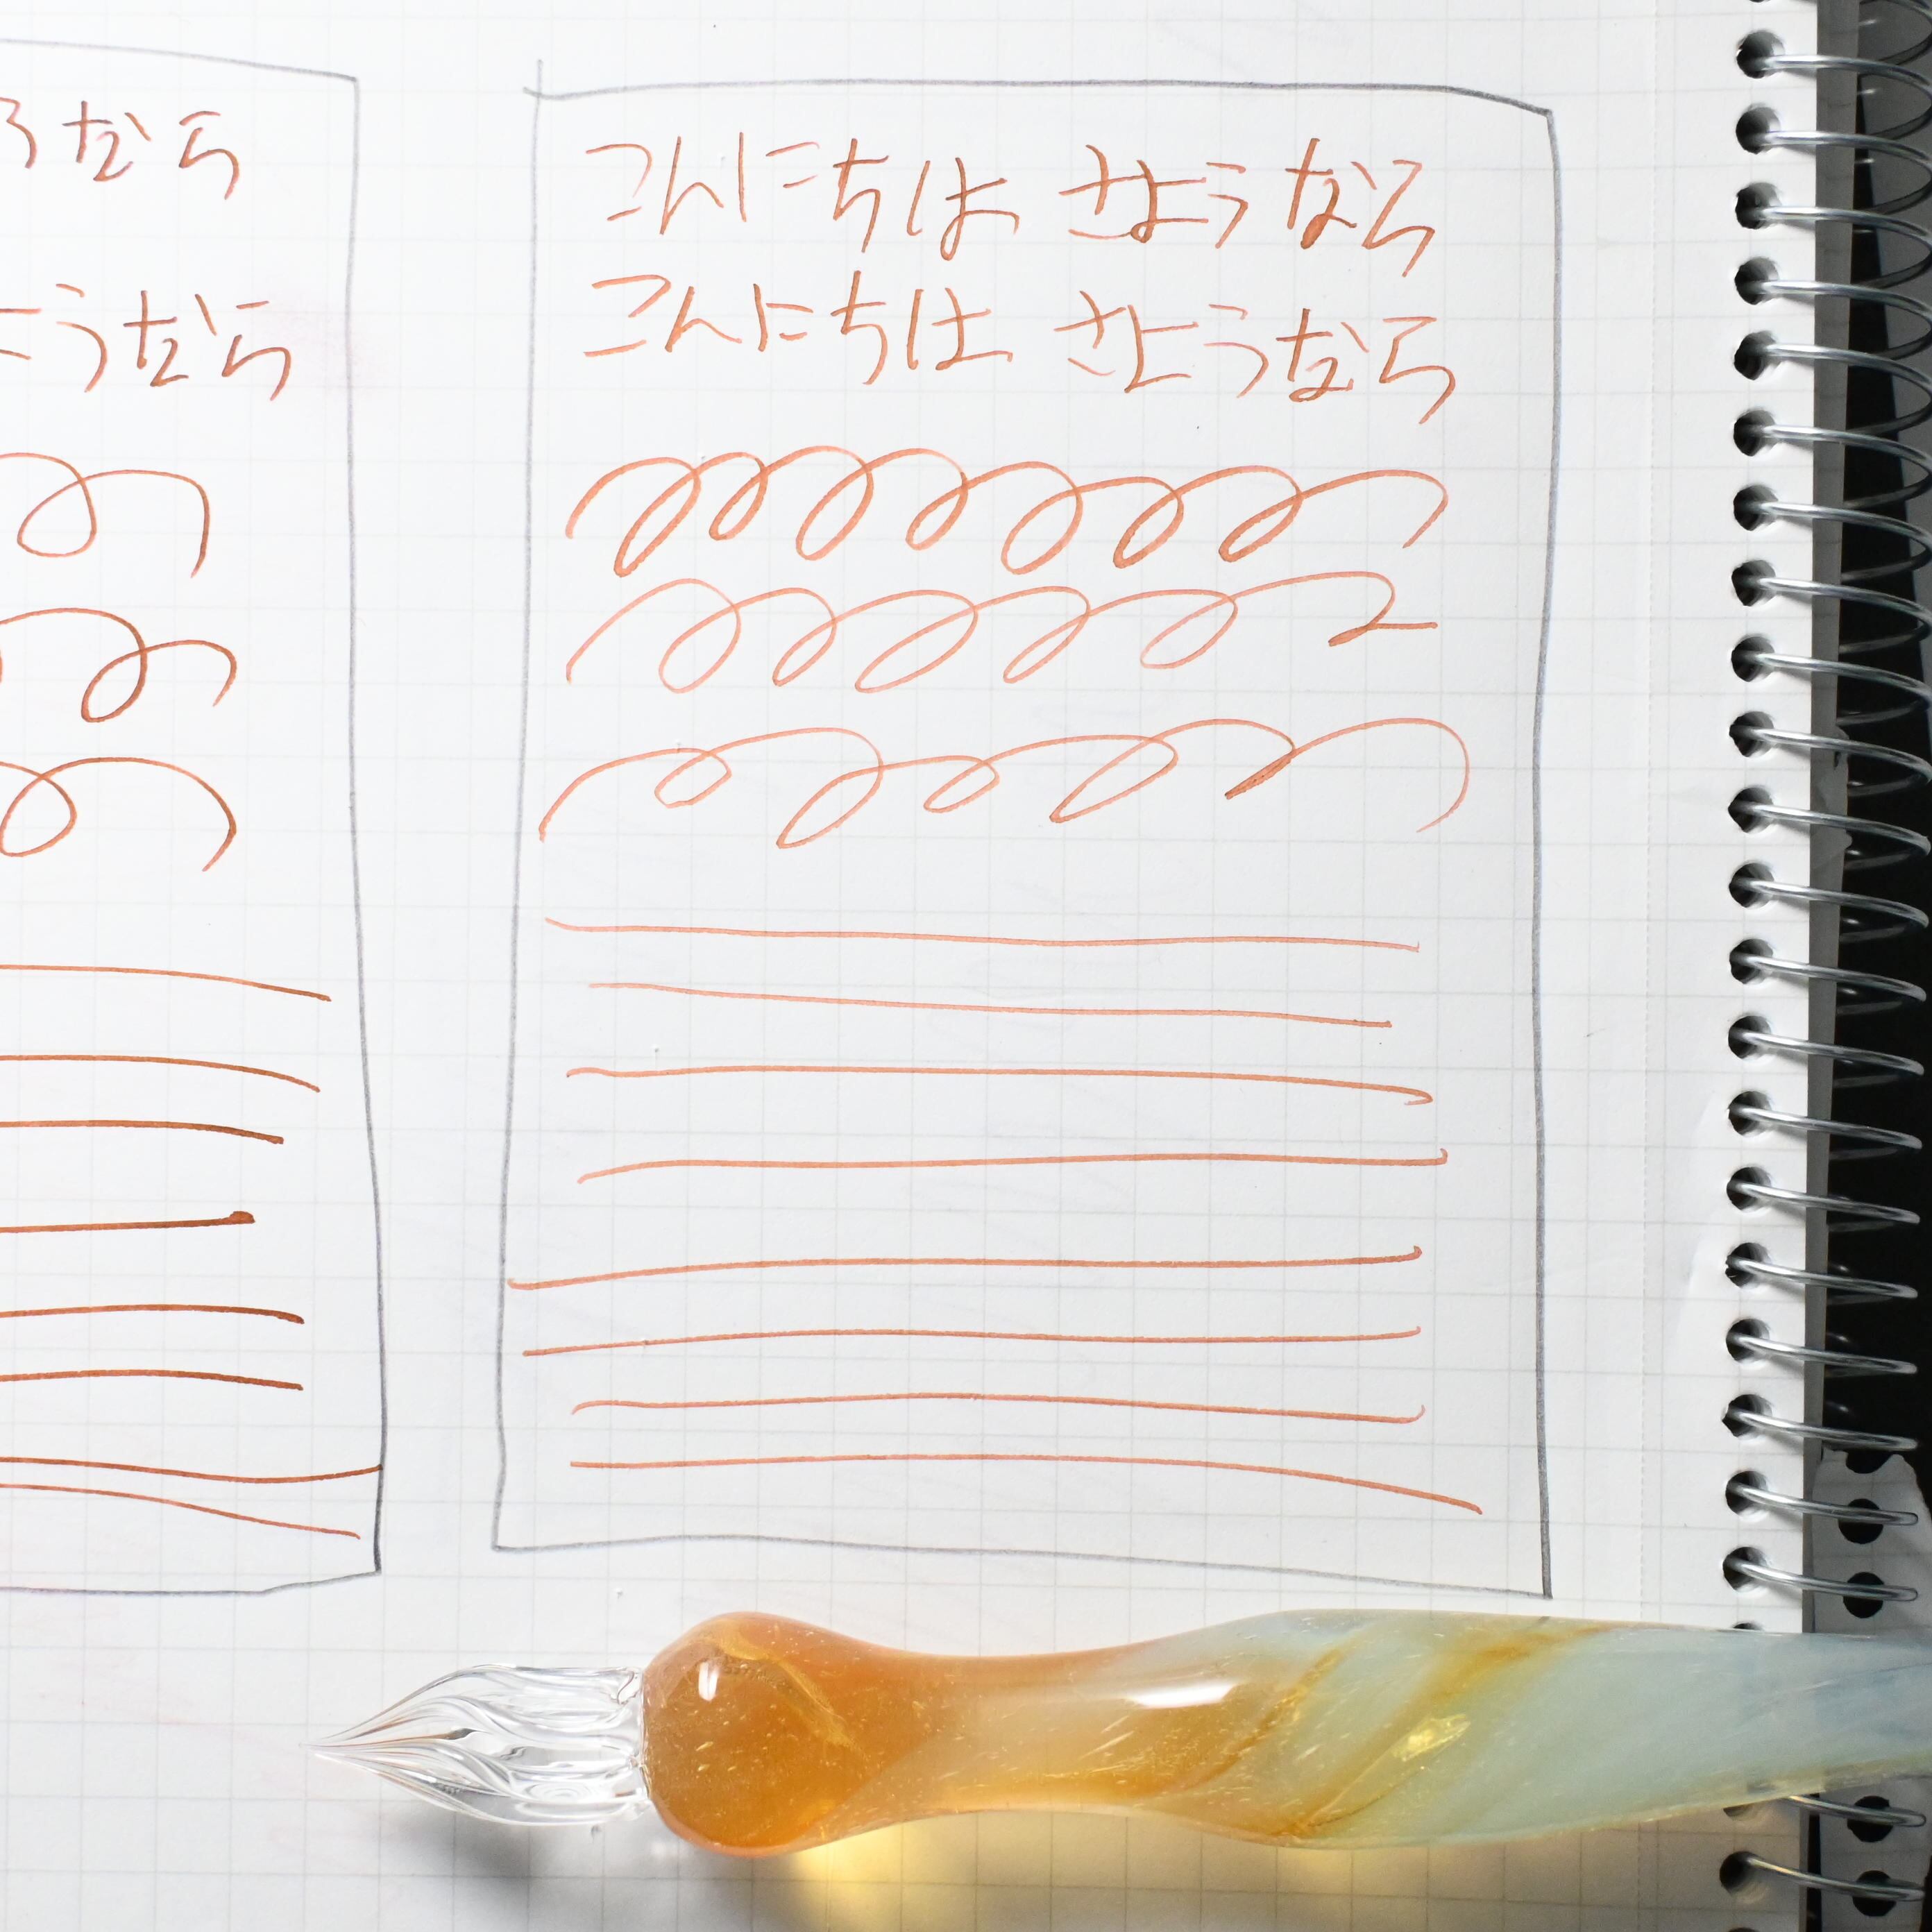 ろなら
ようなら
こんにちは さようなら
こんにちは さようなら